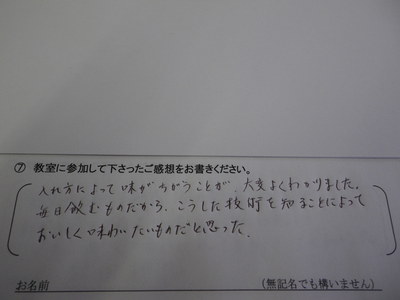 ⑦ 教室に参加して下さったご感想をお書きください。
入れ方によって味がちがうことが、大変よくわかりました。
毎日飲むものだから、こうした技術を知ることによって
おいしく味わいたいものだと思った。
お名前 (無記名でも構いません)